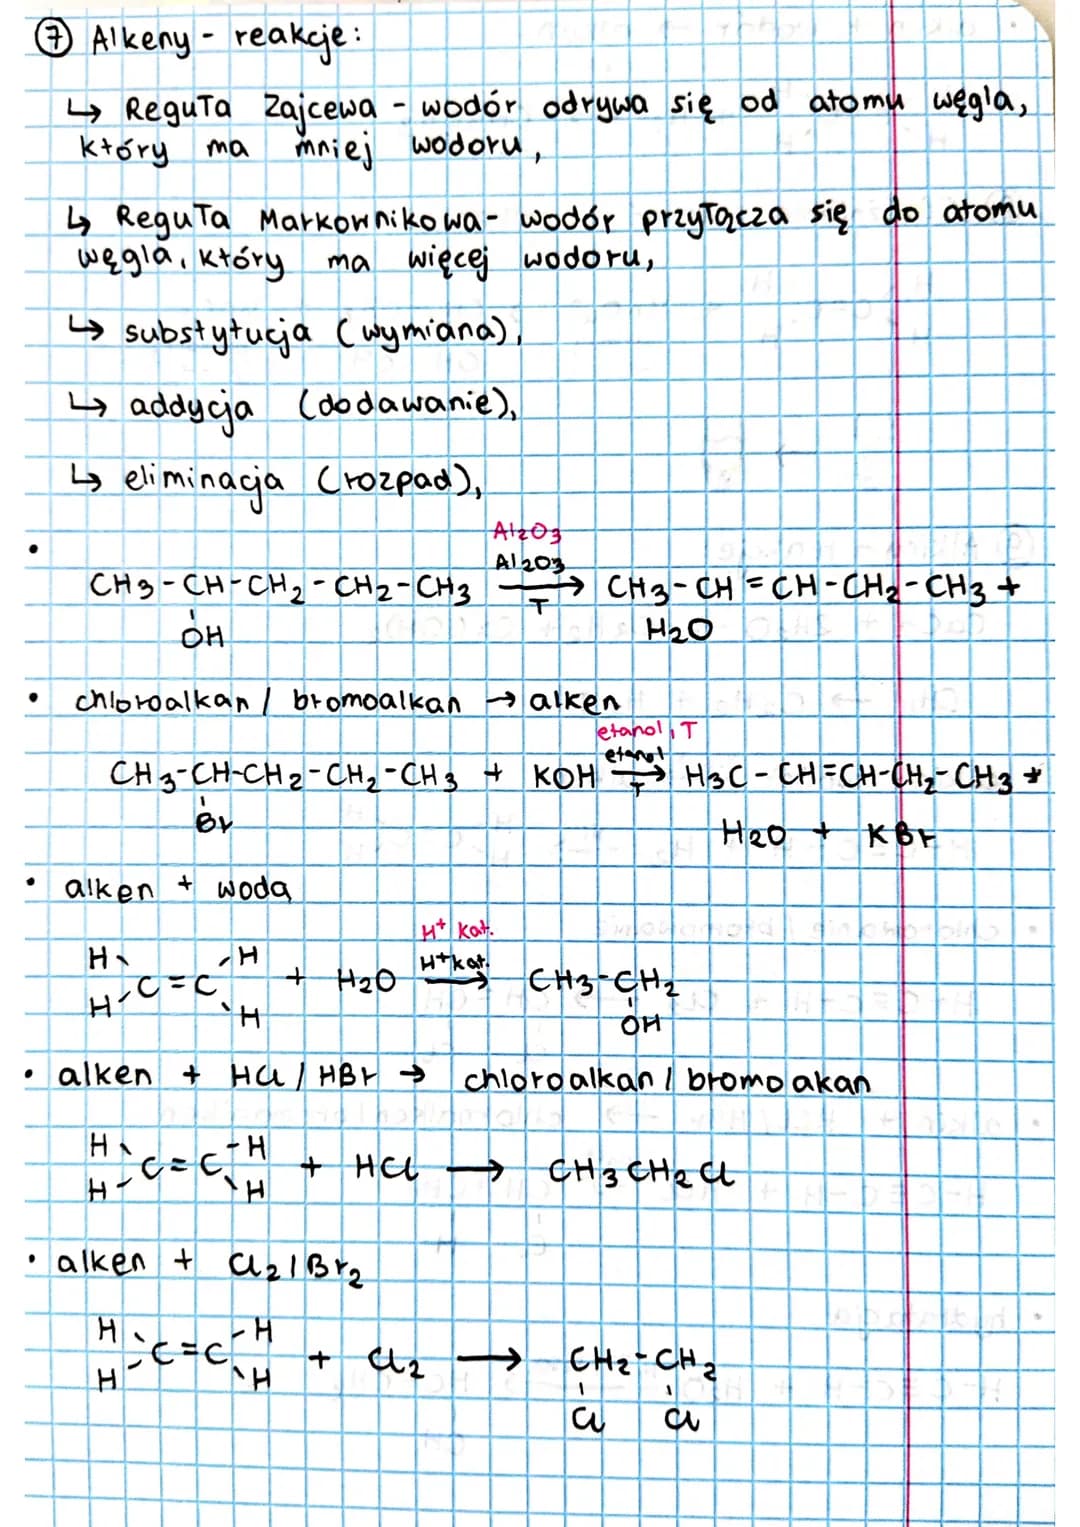 ⑦ Alkeny - reakcje:
↳ Reguła Zajcewa - wodór odrywa się od atomu węgla,
który ma mniej wodoru,
↳ Reguła Markownikowa - wodór przyłącza się do atomu
węgla, który ma więcej wodoru,
↳ substytucja (wymiana),
↳ addycja (dodawanie),
↳ eliminacja (rozpad),
Al2O3
• Al2O3
CH3-CH-CH2-CH2-CH3 → CH3-CH=CH-CH2-CH3 +
T
OH H2O
• chloroalkan / bromoalkan → alken
etanol, T
etanol
CH3-CH-CH2-CH2-CH3 + KOH → H3C-CH=CH-CH2-CH3 +
T
Br H2O + KBr
• alken + woda
H+ kat.
H H H+ kat.
C=C + H2O → CH3-CH2
H H OH
• alken + HCl / HBr → chloroalkan / bromoakan
H H
C=C + HCl → CH3CH2Cl
H H
• alken + Cl2 / Br2
H H
C=C + Cl2 → CH2-CH2
H H
Cl Cl